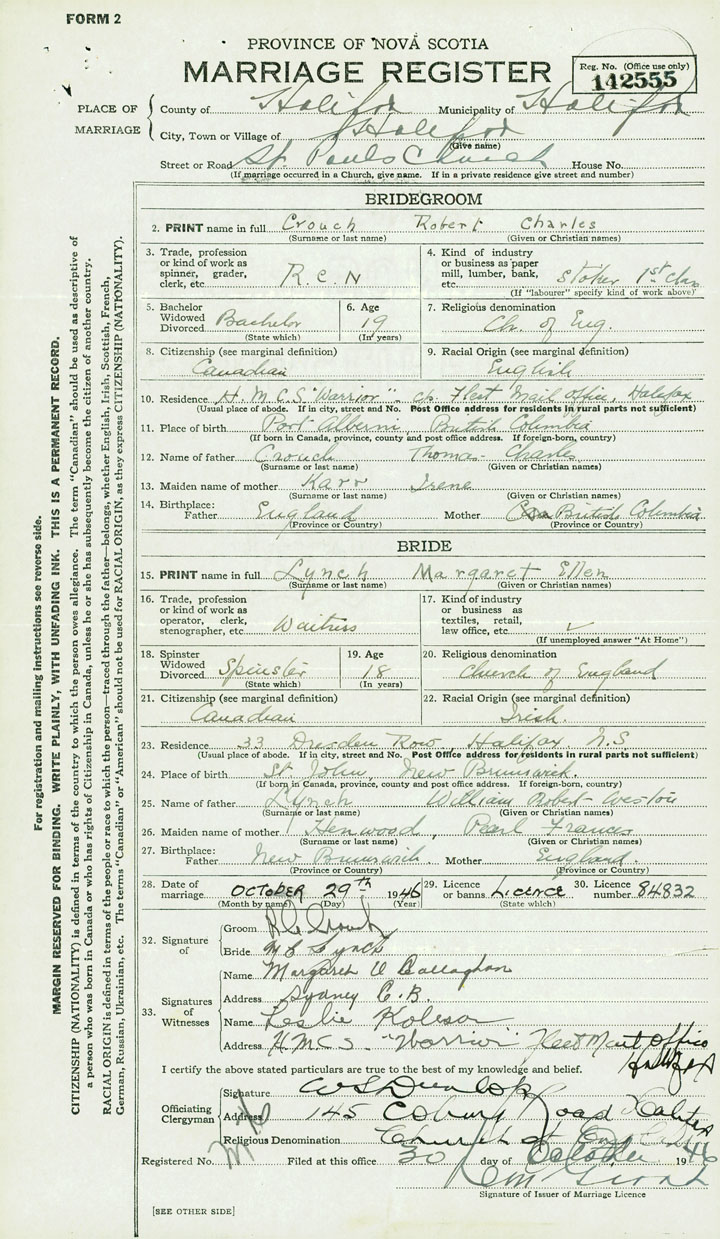 FORM 2
PROVINCE OF NOVA SCOTIA
MARRIAGE REGISTER
Reg. No. (Office use only)
142555
PLACE OF MARRIAGE
County of Halifax Municipality of Halifax
City, Town or Village of Halifax
(Give name)
Street or Road St. Pauls Church House No.
(If marriage occurred in a Church, give name. If in a private residence give street and number)
BRIDEGROOM
2. PRINT name in full Crouch Robert Charles
(Surname or last name) (Given or Christian names)
3. Trade, profession or kind of work as spinner, grader, clerk, etc. R.C.N
4. Kind of industry or business as paper mill, lumber, bank, etc. Stoker 1st Class
(If "labourer" specify kind of work above)
5. Bachelor Widowed Divorced Bachelor
(State which)
6. Age 19
(In years)
7. Religious denomination Ch. of Eng.
8. Citizenship (see marginal definition) Canadian
9. Racial Origin (see marginal definition) English
10. Residence H.M.C.S "Warrior" c/o Fleet Mail Office, Halifax
(Usual place of abode. If in city, street and No. Post Office address for residents in rural parts not sufficient)
11. Place of birth Port Alberni, British Columbia
(If born in Canada, province, county and post office address. If foreign-born, country)
12. Name of father Crouch Thomas Charles
(Surname or last name) (Given or Christian names)
13. Maiden name of mother Karr Irene
(Surname or last name) (Given or Christian names)
14. Birthplace: Father England Mother British Columbia
(Province or Country) (Province or Country)
BRIDE
15. PRINT name in full Lynch Margaret Ellen
(Surname or last name) (Given or Christian names)
16. Trade, profession or kind of work as operator, clerk, stenographer, etc. Waitress
17. Kind of industry or business as textiles, retail, law office, etc. ✓
(If unemployed answer "At Home")
18. Spinster Widowed Divorced Spinster
(State which)
19. Age 18
(In years)
20. Religious denomination Church of England
21. Citizenship (see marginal definition) Canadian
22. Racial Origin (see marginal definition) Irish.
23. Residence 33 Dresden Row, Halifax N.S
(Usual place of abode. If in city, street and No. Post Office address for residents in rural parts not sufficient)
24. Place of birth St. John, New Brunswick.
(If born in Canada, province, county and post office address. If foreign-born, country)
25. Name of father Lynch William Robert Weston
(Surname or last name) (Given or Christian names)
26. Maiden name of mother Henwood, Pearl Frances
(Surname or last name) (Given or Christian names)
27. Birthplace: Father New Brunswick. Mother England.
(Province or Country) (Province or Country)
28. Date of marriage OCTOBER 29th 1946
(Month by name) (Day) (Year)
29. Licence or banns Licence
(State which)
30. Licence number 84832
32. Signature of
Groom R C Crouch
Bride M E Lynch
33. Signatures of Witnesses
Name Margaret O Callaghan
Address Sydney C.B.
Name Leslie
Address H.M.C.S "Warrior" Fleet Mail Office
Halifax
I certify the above stated particulars are true to the best of my knowledge and belief.
Officiating Clergyman
Signature W S Dunlop
Address 145 Coburg Road Halifax
Religious Denomination Church of England
Registered No. Filed at this office 30 day of October 1946
Signature of Issuer of Marriage Licence
[SEE OTHER SIDE]
For registration and mailing instructions see reverse side.
MARGIN RESERVED FOR BINDING. WRITE PLAINLY, WITH UNFADING INK. THIS IS A PERMANENT RECORD.
CITIZENSHIP (NATIONALITY) is defined in terms of the country to which the person owes allegiance. The term "Canadian" should be used as descriptive of
a person who was born in Canada or who has rights of Citizenship in Canada, unless he or she has subsequently become the citizen of another country.
RACIAL ORIGIN is defined in terms of the people or race to which the person—traced through the father—belongs, whether English, Irish, Scottish, French,
German, Russian, Ukrainian, etc. The terms "Canadian" or "American" should not be used for RACIAL ORIGIN, as they express CITIZENSHIP (NATIONALITY).